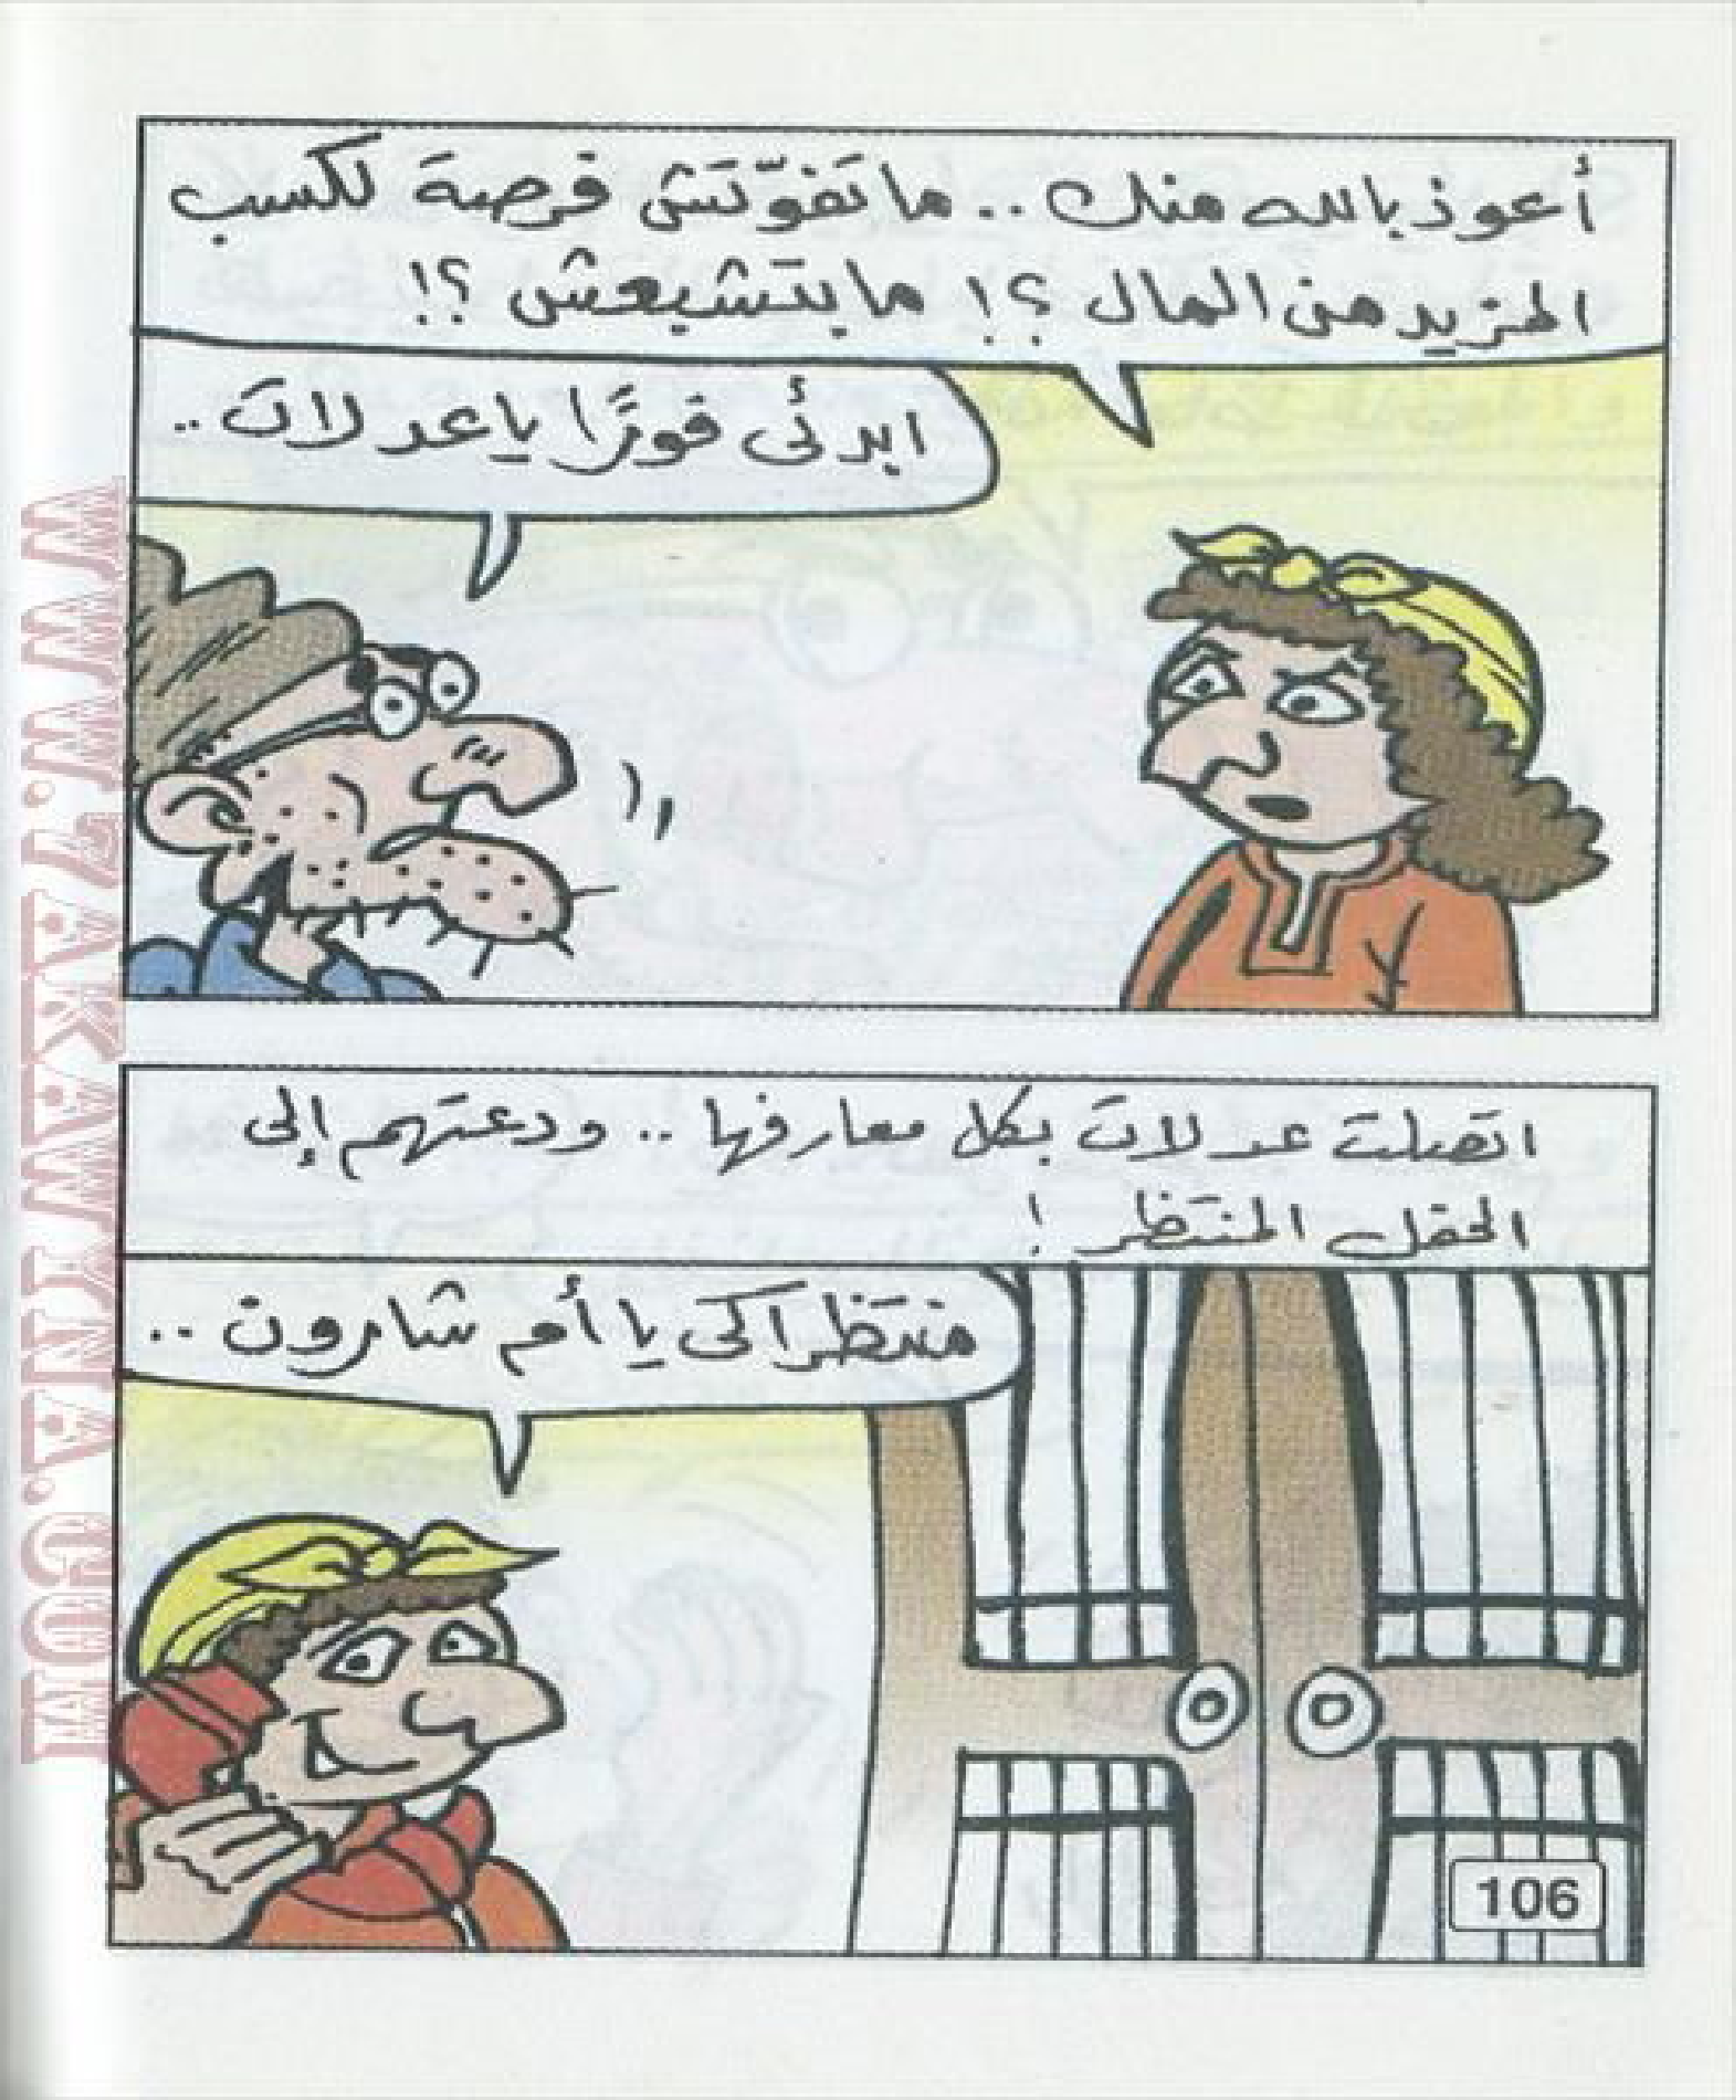 أعوذ بالله منك .. ما تفوّتش فرصة لكسب
المزيد من المال ؟! ما بتشبعش ؟!
ابدئى فورًا يا عدلات ..
اتصلت عدلات بكل معارفها .. ودعتهم إلى
الحفل المنتظر !
منتظراكى يا أم شارون ..
106
WWW.7AKAWITNA.COM